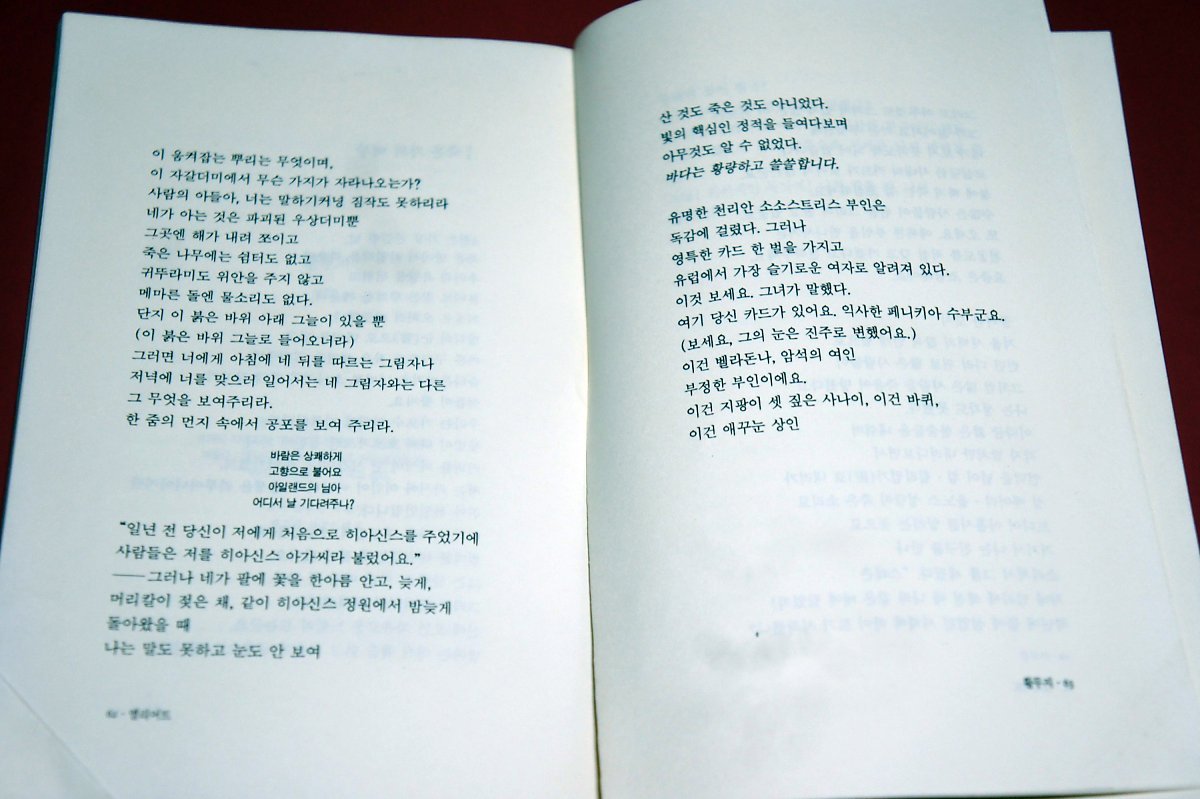 이 움켜잡는 뿌리는 무엇이며,
이 자갈더미에서 무슨 가지가 자라나오는가?
사람의 아들아, 너는 말하기커녕 짐작도 못하리라
네가 아는 것은 파괴된 우상더미뿐
그곳엔 해가 내려 쪼이고
죽은 나무에는 쉼터도 없고
귀뚜라미도 위안을 주지 않고
메마른 돌엔 물소리도 없다.
단지 이 붉은 바위 아래 그늘이 있을 뿐
(이 붉은 바위 그늘로 들어오너라)
그러면 너에게 아침에 네 뒤를 따르는 그림자나
저녁에 너를 맞으러 일어서는 네 그림자와는 다른
그 무엇을 보여주리라.
한 줌의 먼지 속에서 공포를 보여 주리라.
바람은 상쾌하게
고향으로 불어요
아일랜드의 님아
어디서 날 기다려주나?
“일년 전 당신이 저에게 처음으로 히아신스를 주었기에
사람들은 저를 히아신스 아가씨라 불렀어요.”
――그러나 네가 팔에 꽃을 한아름 안고, 늦게,
머리칼이 젖은 채, 같이 히아신스 정원에서 밤늦게
돌아왔을 때
나는 말도 못하고 눈도 안 보여
62 · 엘리어트
산 것도 죽은 것도 아니었다.
빛의 핵심인 정적을 들여다보며
아무것도 알 수 없었다.
바다는 황량하고 쓸쓸합니다.
유명한 천리안 소소스트리스 부인은
독감에 걸렸다. 그러나
영특한 카드 한 벌을 가지고
유럽에서 가장 슬기로운 여자로 알려져 있다.
이것 보세요. 그녀가 말했다.
여기 당신 카드가 있어요. 익사한 페니키아 수부군요.
(보세요, 그의 눈은 진주로 변했어요.)
이건 벨라돈나, 암석의 여인
부정한 부인이에요.
이건 지팡이 셋 짚은 사나이, 이건 바퀴,
이건 애꾸눈 상인
황무지 · 63